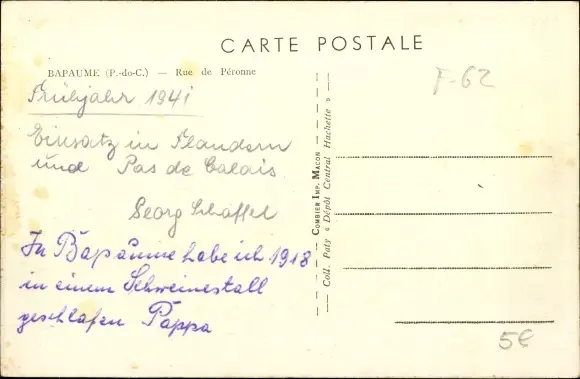 CARTE POSTALE
BAPAUME (P.-do-C.) — Rue de Péronne
F-62
Frühjahr 1941
Einsatz in Flandern
und Pas de Calais
Georg Schäffel
In Bapaume habe ich 1918
in einem Schweinestall
geschlafen Pappa
COMBIER IMP. MACON
Coll. Paty « Dépôt Central Hachette »
5€